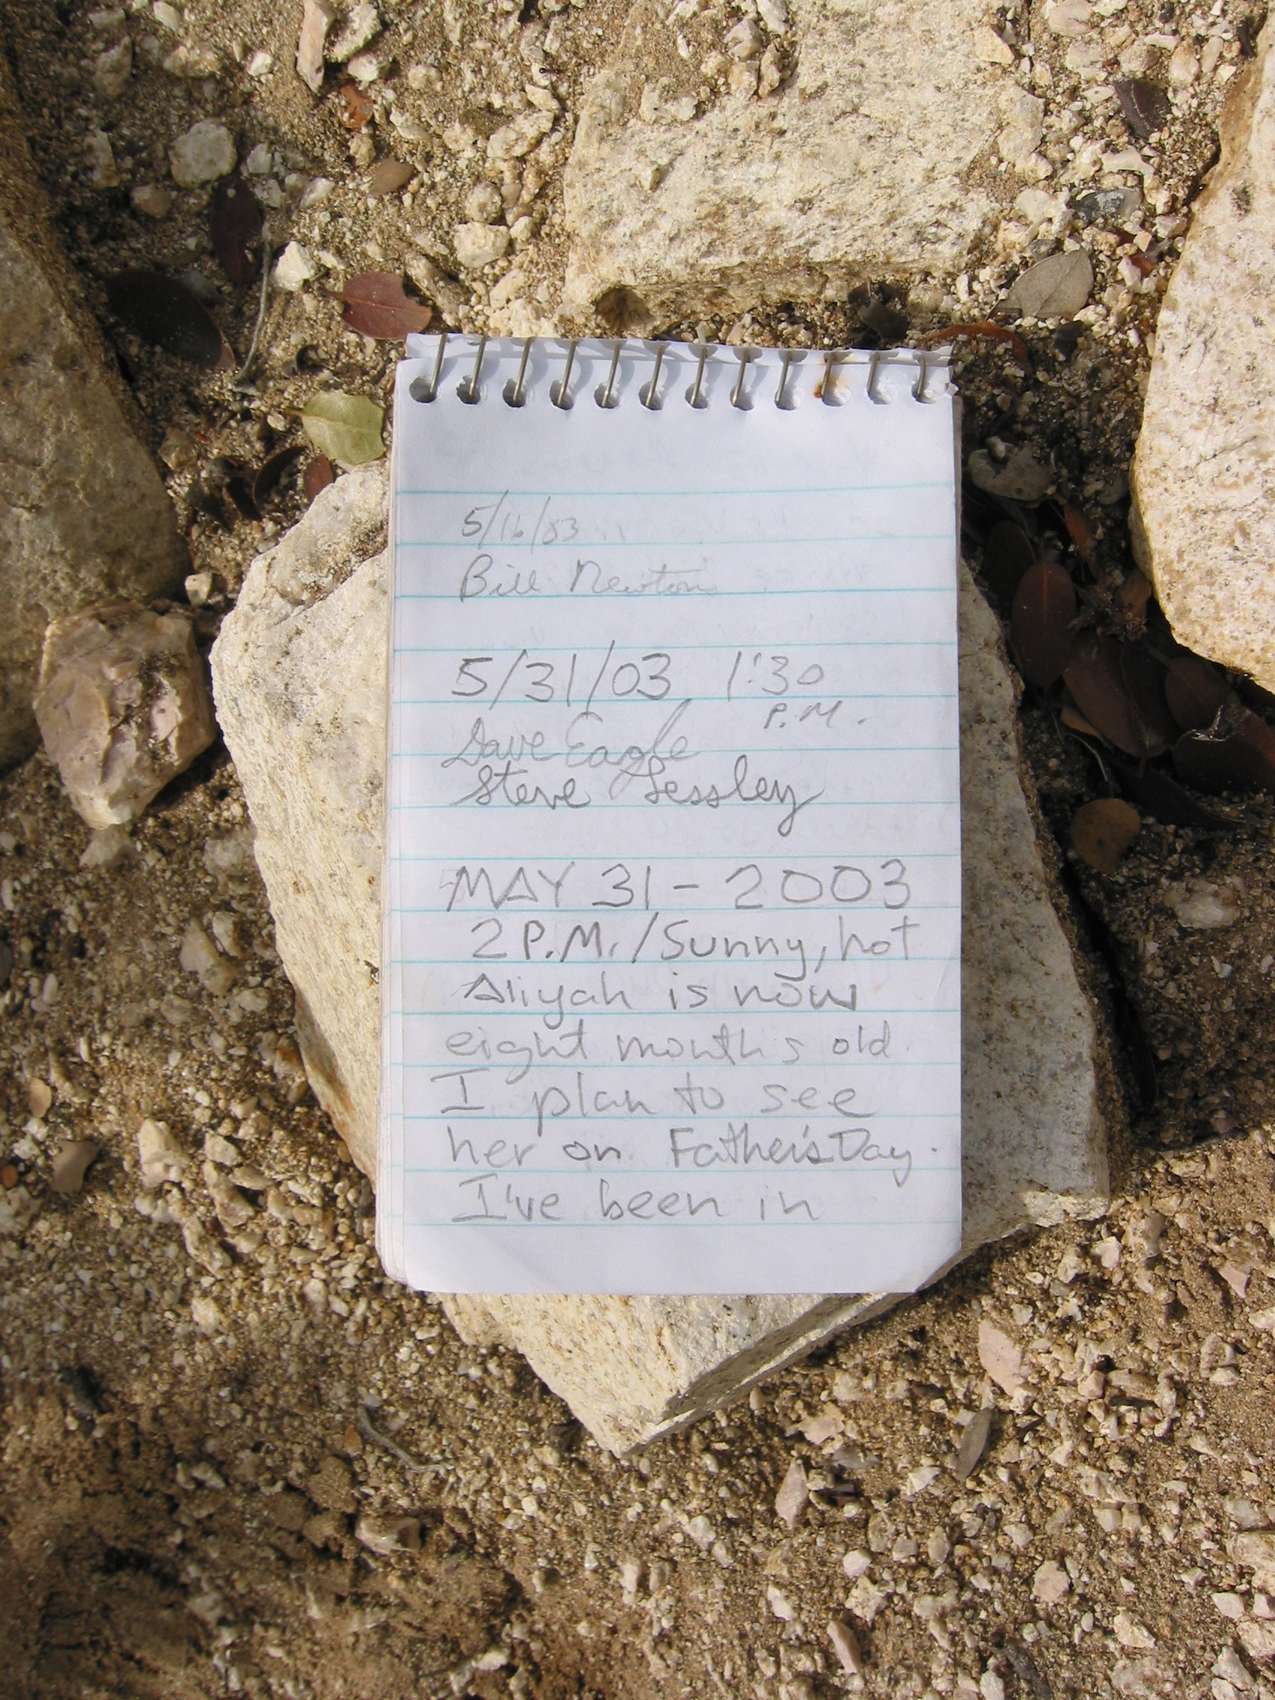 5/16/03
Bill Newton
5/31/03 1:30
P.M.
Dave Eagle
Steve Lessley
MAY 31 - 2003
2 P.M. / Sunny, hot
Aliyah is now
eight months old
I plan to see
her on Father's Day.
I've been in